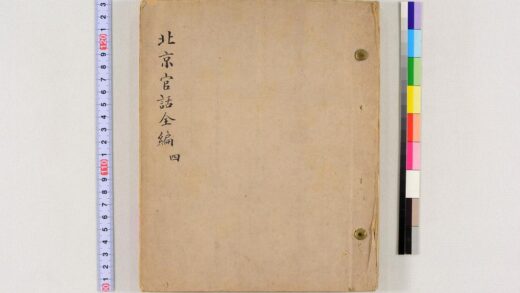 北京官話全編
四